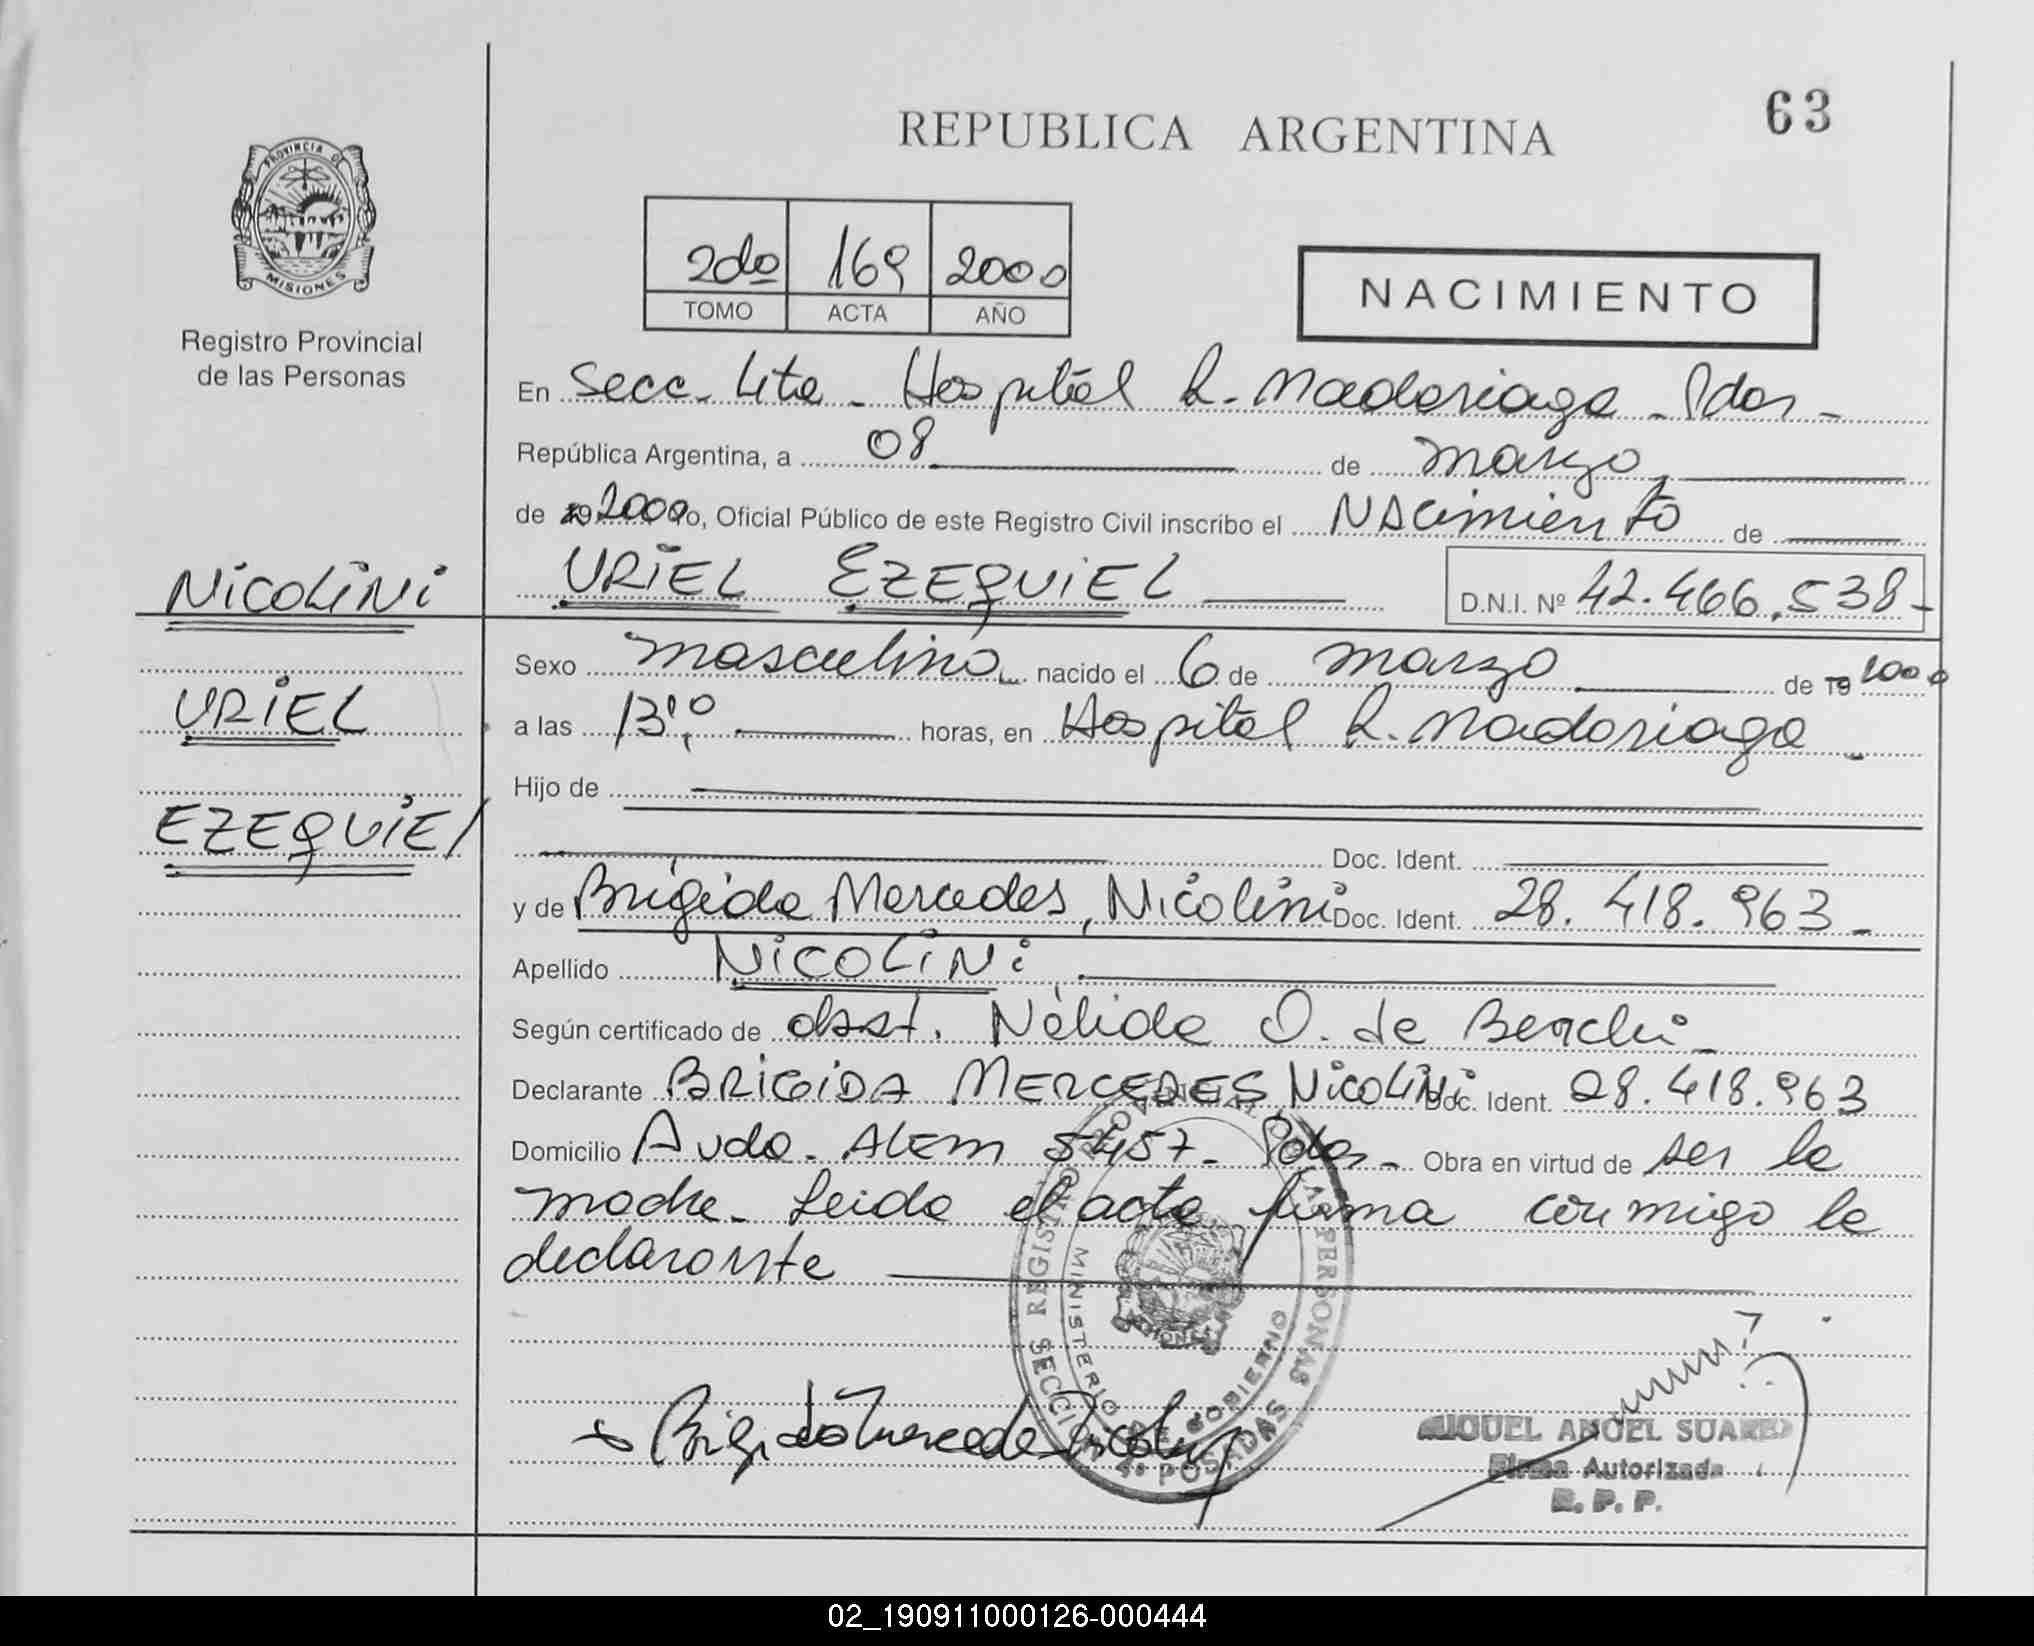 63
REPUBLICA ARGENTINA
PROVINCIA DE
MISIONES
Registro Provincial
de las Personas
2do 169 2000
TOMO ACTA AÑO
NACIMIENTO
En Secc. 4ta - Hospital R. Madariaga - Pdas -
República Argentina, a 08 de marzo
de 19 2000 Yo, Oficial Público de este Registro Civil inscribo el NAcimiento de
NICOLINI URIEL EZEQUIEL D.N.I. Nº 42.466.538-
Sexo masculino nacido el 6 de marzo de 19 2000
URIEL a las 13,10 horas, en Hospital R. Madariaga -
Hijo de
EZEQUIEL Doc. Ident.
y de Brígida Mercedes, Nicolini Doc. Ident. 28.418.963 -
Apellido NICOLINI
Según certificado de obst. Nélida O. de
Declarante BRIGIDA MERCEDES NicoLiNi Doc. Ident. 28.418.963
Domicilio Avda. ALEM 5457- Pdas - Obra en virtud de ser la
madre. Leida el acta firma conmigo la
declarante
REGISTRO PROVINCIAL DE LAS PERSONAS
MINISTERIO DE GOBIERNO
MISIONES
SECCION 4ª POSADAS
Brigida Mercedes Nicolini
MIGUEL ANGEL SUAREZ
Firma Autorizada
R. P. P.
02_190911000126-000444